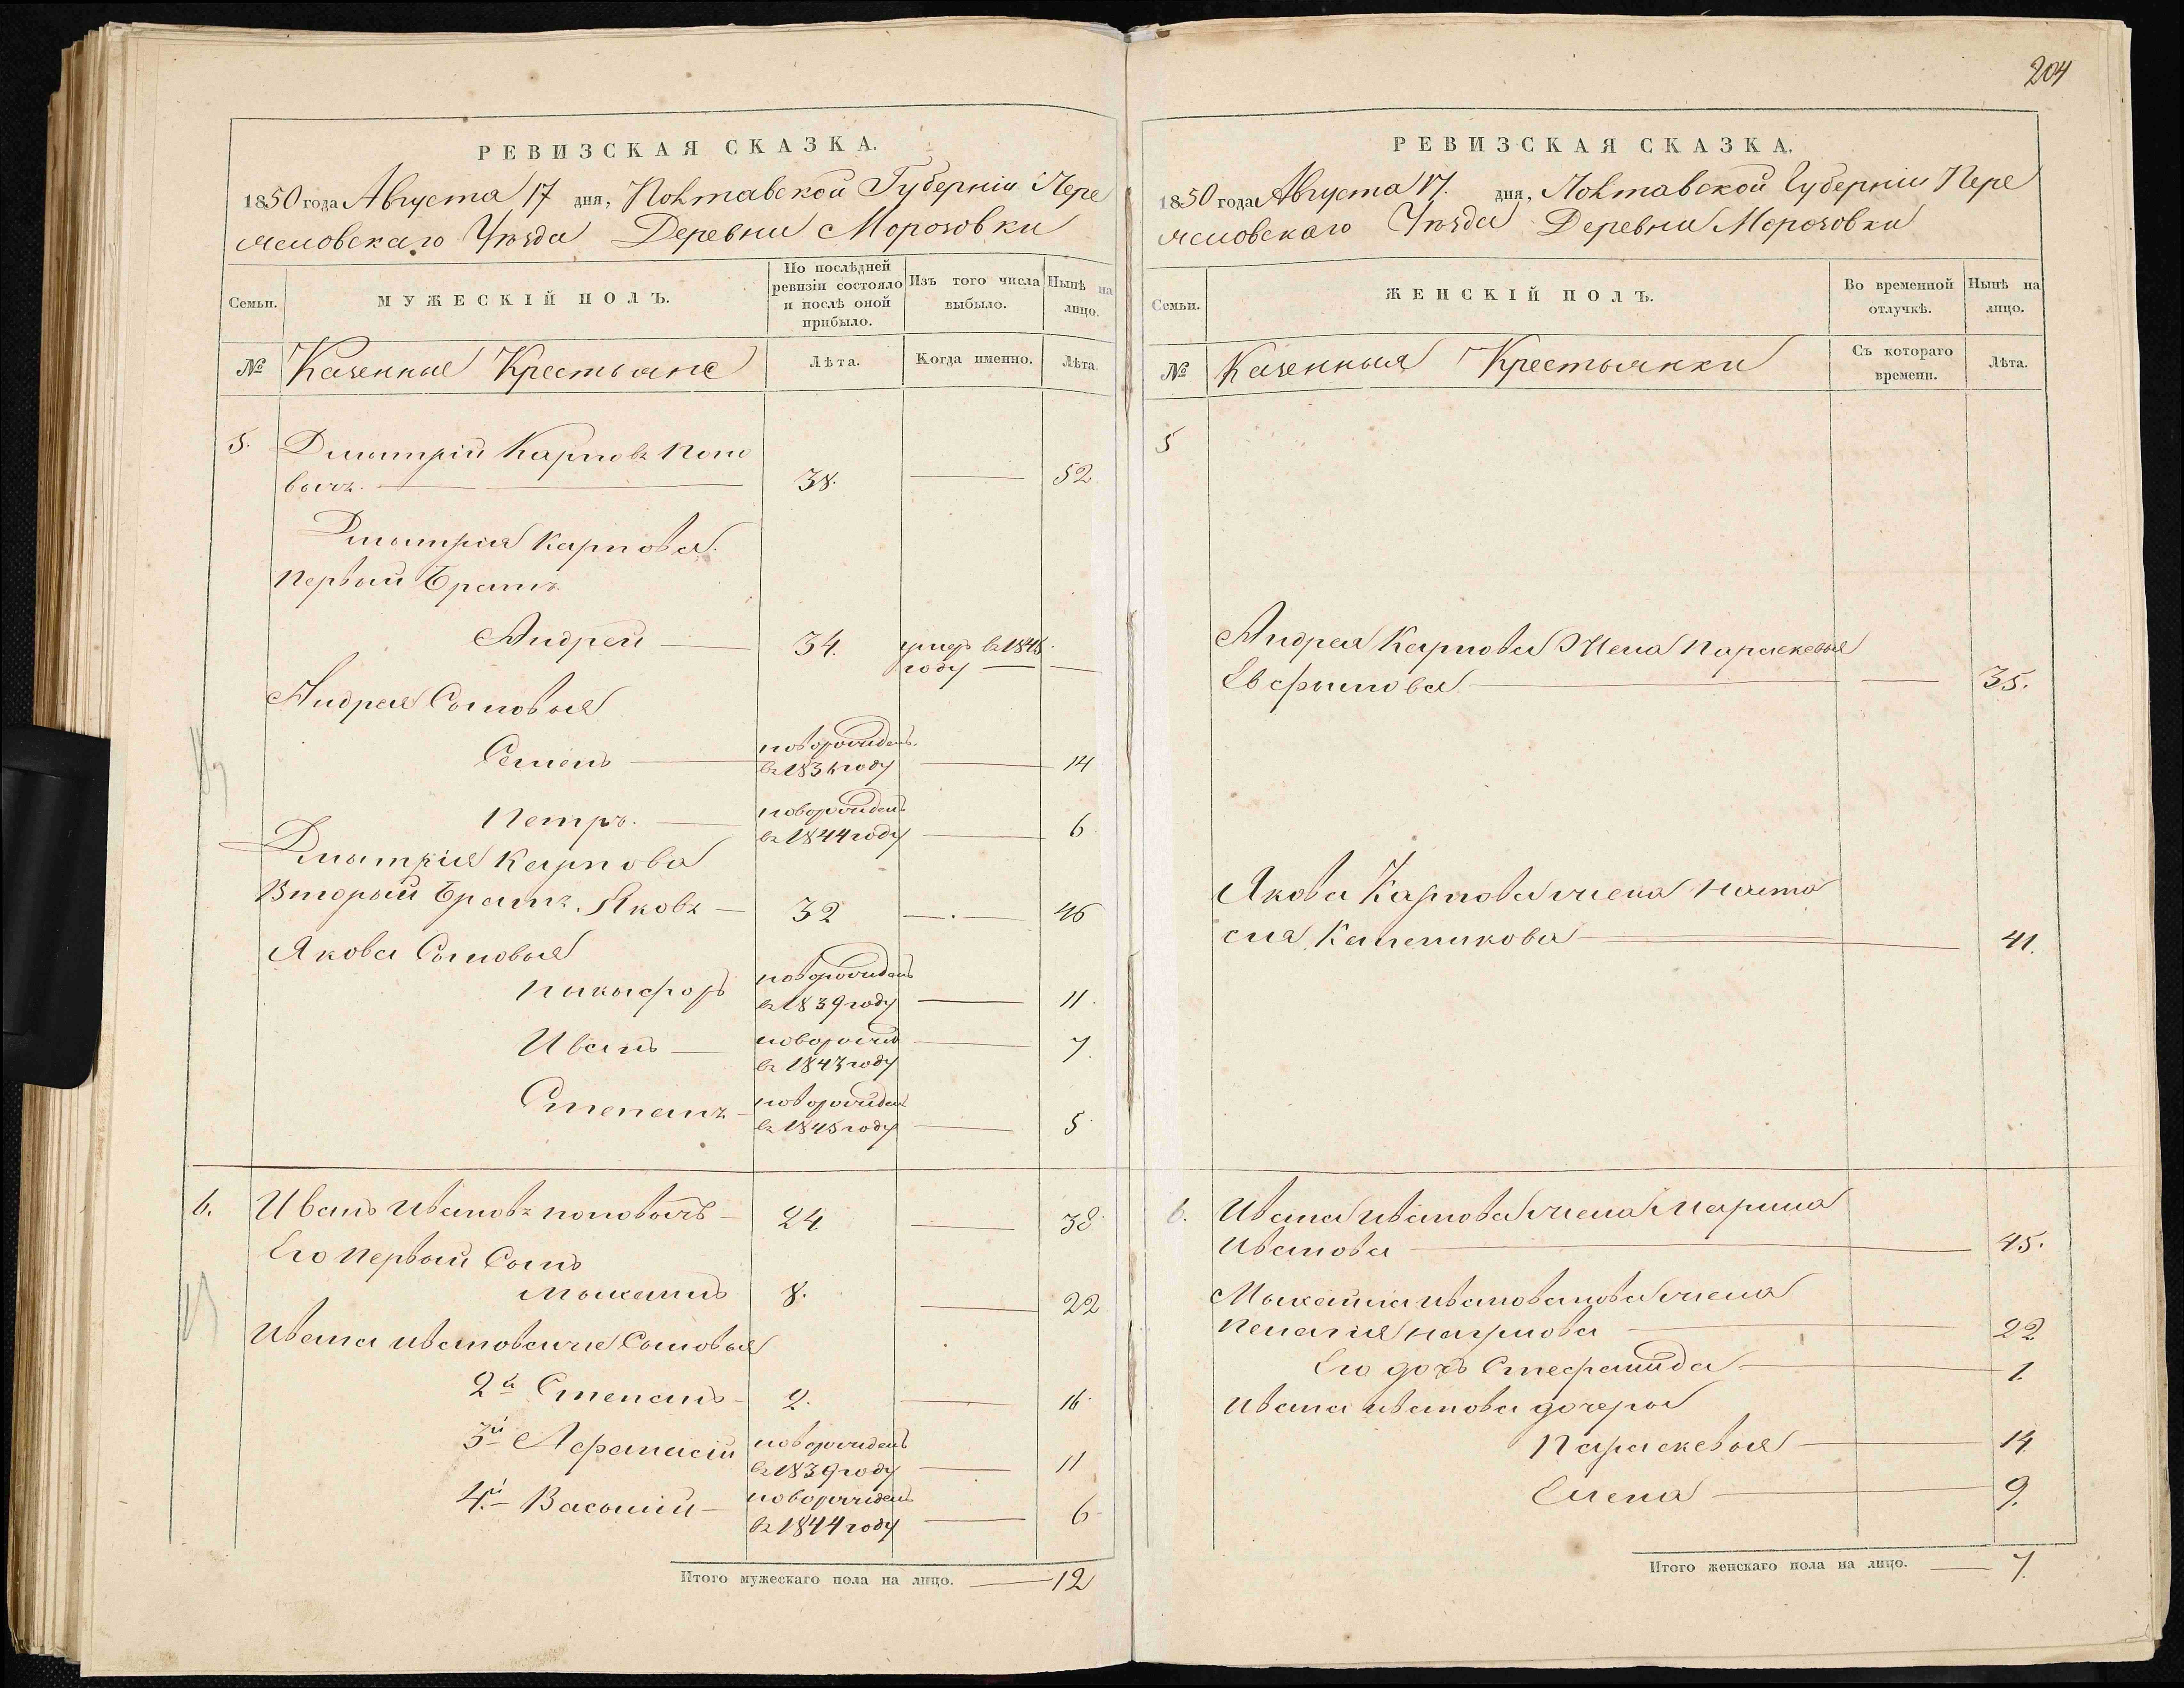 204
РЕВИЗСКАЯ СКАЗКА.
1850 года Августа 17 дня, Полтавской Губерніи Пере
яславскаго Уѣзда Деревни Морозовки
Семьи.
МУЖЕСКІЙ ПОЛЪ.
По послѣдней ревизіи состояло и послѣ оной прибыло.
Изъ того числа выбыло.
Нынѣ на лицо.
№ Казенные Крестьяне
Лѣта. Когда именно. Лѣта.
5. Дмитрій Карповъ Попо
вичъ. 38. 52
Дмитрія Карпова
Первый братъ
Андрей 34. умеръ въ 1845
году
Андрея Сыновья
Семенъ новорожденъ въ 1836 году 14
Петръ. новорожденъ въ 1844 году 6
Дмитрія Карпова
Вторый братъ Яковъ 32 46
Якова Сыновья
Никифоръ новорожденъ въ 1839 году 11.
Иванъ новорожд въ 1843 году 7.
Степанъ новорожден въ 1845 году 5
6. Иванъ Ивановъ поповичъ 24 38
Его первый Сынъ
Михаилъ 8. 22
Ивана Сыновья
2й Степанъ 2. 16
3й Афанасій новорожденъ въ 1839 году 11
4й Василій новорожденъ въ 1844 году 6
Итого мужескаго пола на лицо. 12
РЕВИЗСКАЯ СКАЗКА.
1850 года Августа 17. дня, Полтавской Губерніи Пере
яславскаго Уѣзда Деревни Морозовки
Семьи.
ЖЕНСКІЙ ПОЛЪ.
Во временной отлучкѣ.
Нынѣ на лицо.
№ Казенныя Крестьянки
Съ котораго времени. Лѣта.
5
Андрея Карпова Жена Параскевья
35.
Якова Карпова жена Наста
сія 41.
6. Ивана Иванова жена Марина
Иванова 45.
Михайла жена
Пелагія 22
Его дочь Стефанида 1.
Ивана Иванова дочеры
Параскевья 14
Елена 9.
Итого женскаго пола на лицо. 7.